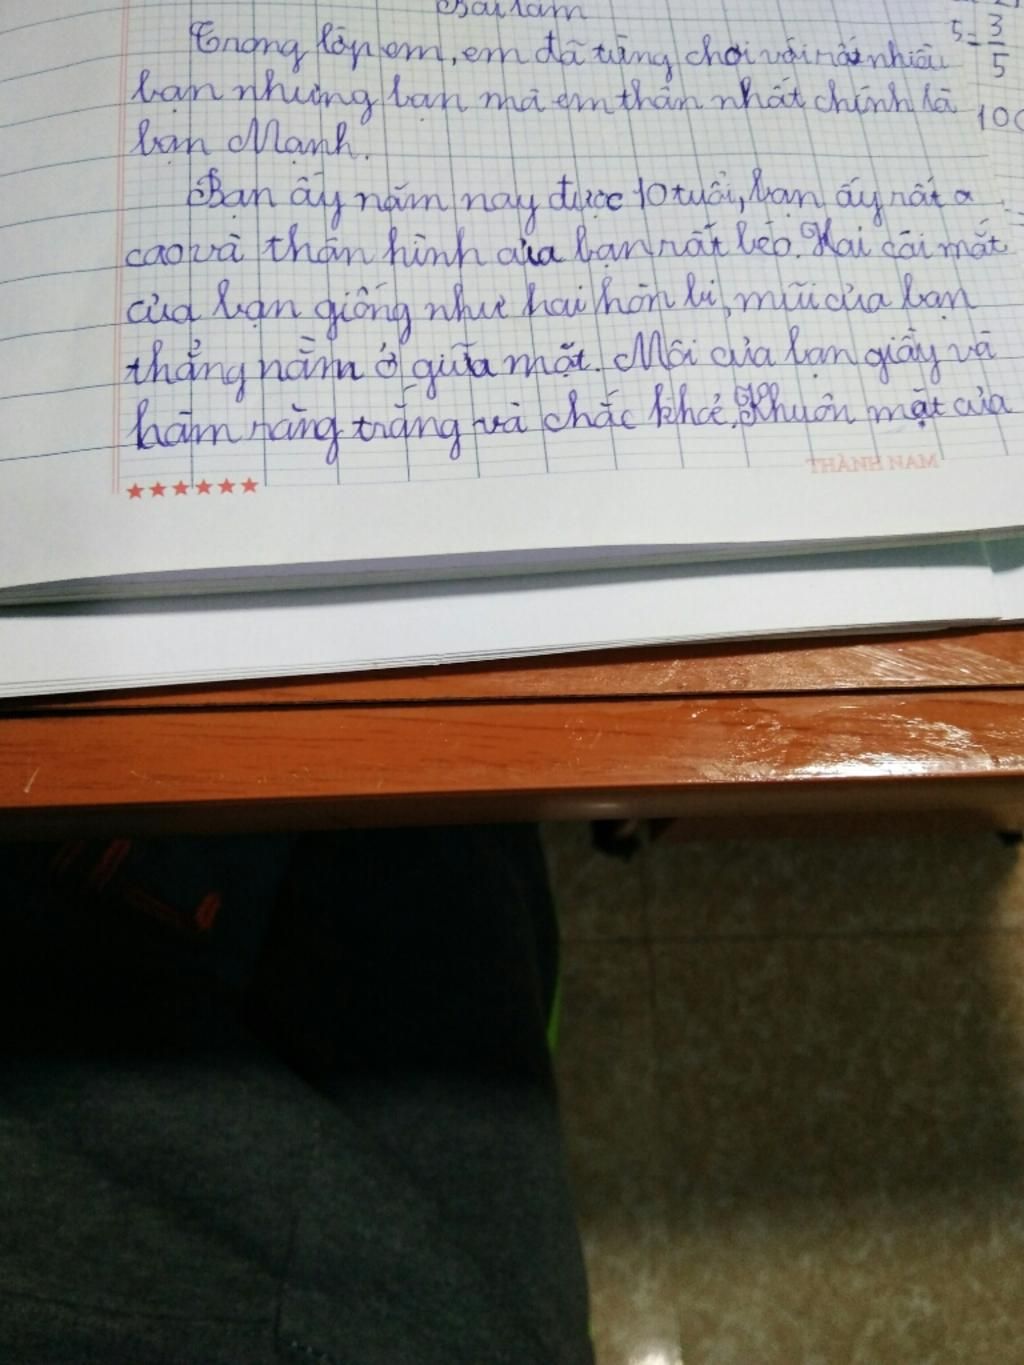 Bài làm
Trong lớp em, em đã từng chơi với rất nhiều
bạn nhưng bạn mà em thân nhất chính là
bạn Mạnh.
Bạn ấy năm nay được 10 tuổi, bạn ấy rất
cao và thân hình của bạn rất béo. Hai cái mắt
của bạn giống như hai hòn bi, mũi của bạn
thẳng nằm ở giữa mặt. Môi của bạn giầy và
hàm răng trắng và chắc khoẻ. Khuôn mặt của
5 = 3/5
10
THÀNH NAM